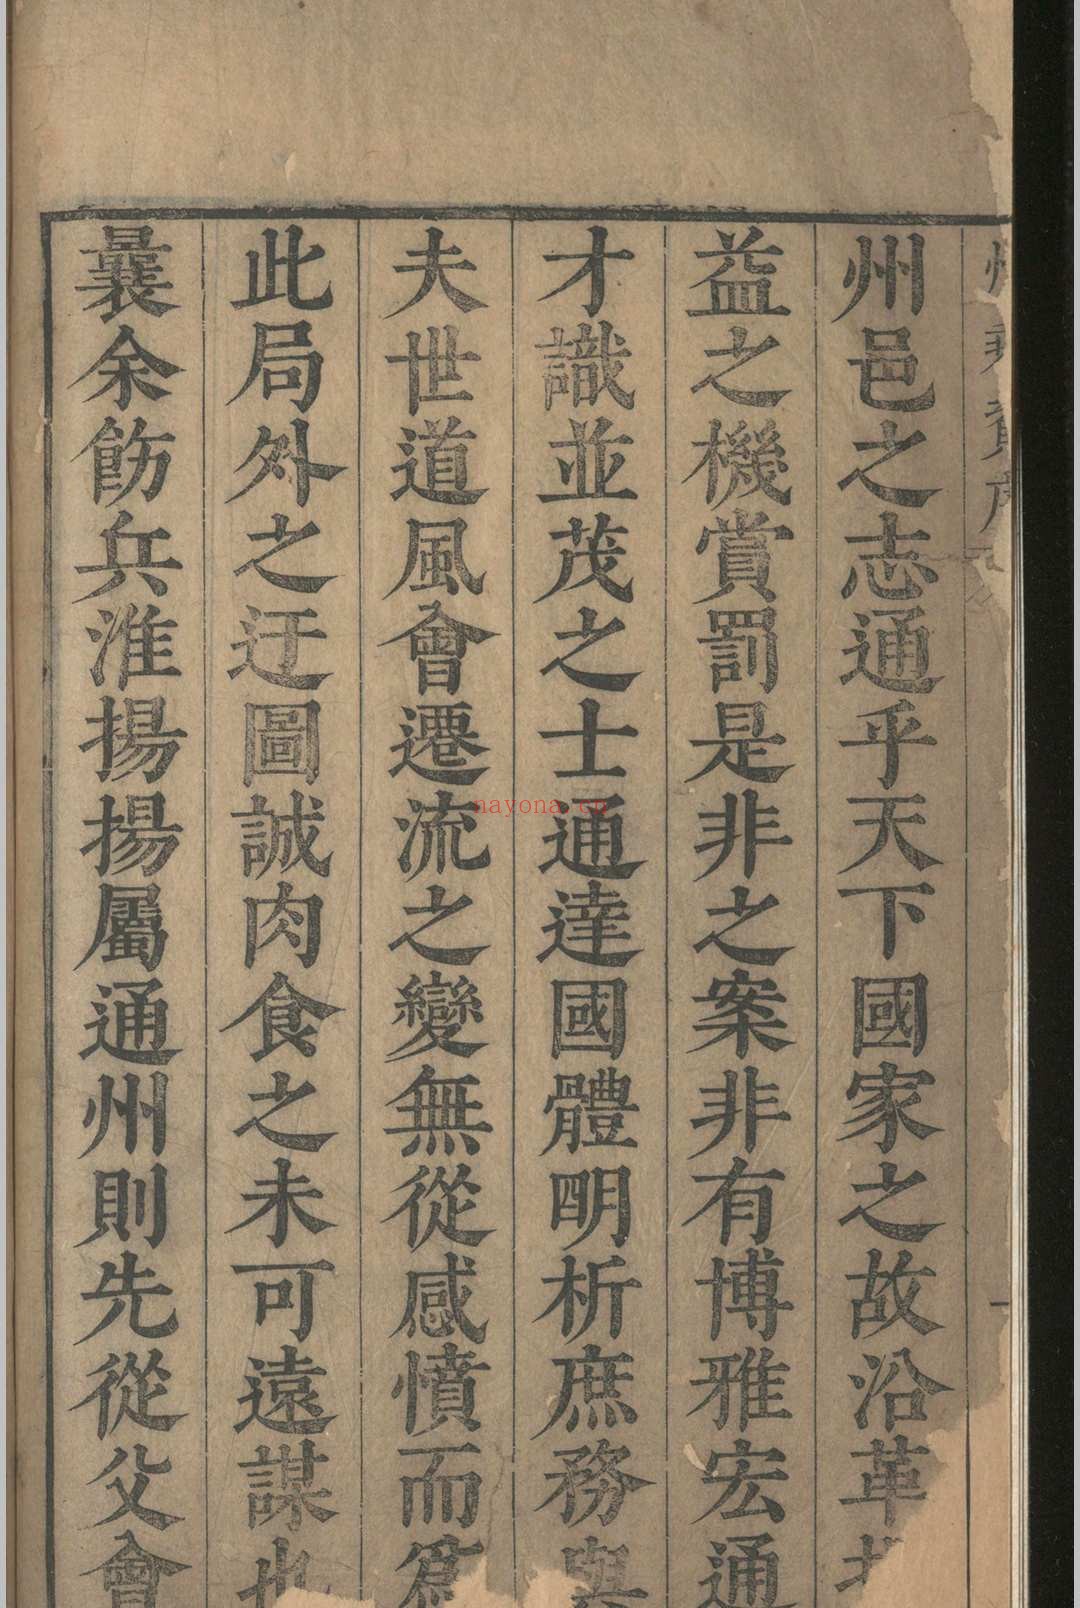 州乘資序
州邑之志通乎天下國家之故沿革
益之機賞罰是非之案非有博雅宏通
才識並茂之士通達國體明析庶務與
夫世道風會遷流之變無從感憤而爲
此局外之迂圖誠肉食之未可遠謀也
曩余飭兵淮揚揚屬通州則先從父會
nayona.cn